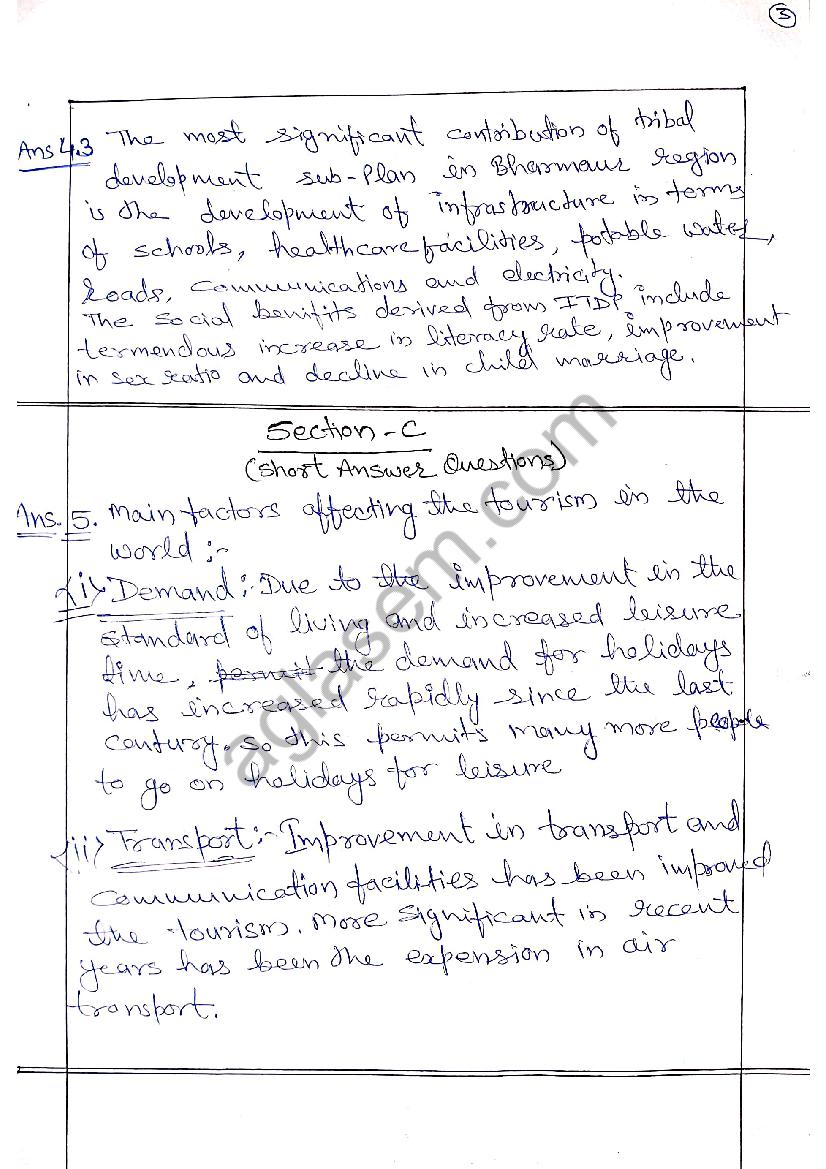 3
Ans 4.3 The most significant contribution of tribal
development sub-Plan in Bharmaur region
is the development of infrastructure in terms
of schools, healthcare facilities, potable water,
Roads, communications and electricity.
The social benifits derived from ITDP include
termendous increase in literacy rate, improvement
in sex ratio and decline in child marriage.
Section - C
(Short Answer Questions)
Ans. 5. Main factors affecting the tourism in the
world :-
(i) Demand :- Due to the improvement in the
standard of living and increased leisure
time, permit the demand for holidays
has increased rapidly since the last
century. so this permits many more people
to go on holidays for leisure
(ii) Transport :- Improvement in transport and
communication facilities has been improved
the tourism. More significant in recent
years has been the expension in air
transport.
aglasem.com